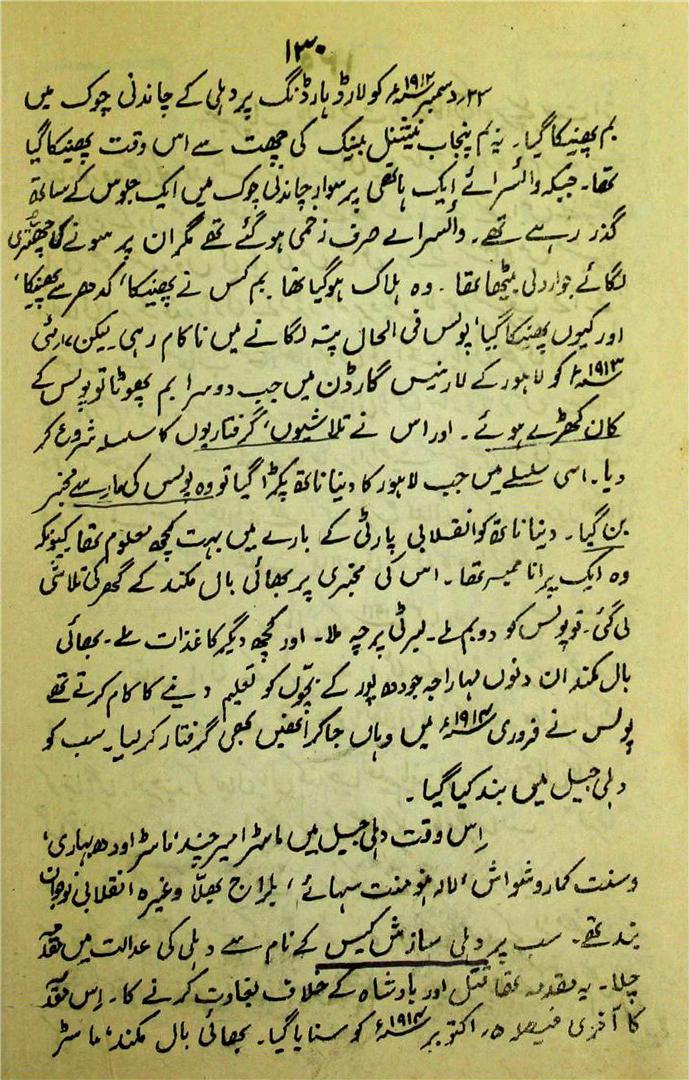 ۱۳۰
۲۳؍دسمبر ۱۹۱۲ء کو لارڈ ہارڈنگ پر دہلی کے چاندنی چوک میں
بم پھینکا گیا۔ یہ بم پنجاب نیشنل بینک کی چھت سے اس وقت پھینکا گیا
تھا۔ جبکہ وائسرائے ایک ہاتھی پر سوار چاندنی چوک میں ایک جلوس کے ساتھ
گذر رہے تھے۔ وائسرائے صرف زخمی ہو گئے تھے مگر ان پر سونے کی چھتری
لگائے جو اردلی بیٹھا تھا۔ وہ ہلاک ہو گیا تھا بم کس نے پھینکا، کدھر سے پھینکا،
اور کیوں پھینکا گیا، پولس فی الحال پتہ لگانے میں ناکام رہی۔ لیکن ۱۷؍مئی
۱۹۱۳ء کو لاہور کے لارنیس گارڈن میں جب دوسرا بم پھوٹا تو پولس کے
کان کھڑے ہوئے۔ اور اس نے تلاشیوں، گرفتاریوں کا سلسلہ شروع کر
دیا۔ اسی سلسلے میں جب لاہور کا دینا ناتھ پکڑا گیا تو وہ پولس کی مار سے مخبر
بن گیا۔ دینا ناتھ کو انقلابی پارٹی کے بارے میں بہت کچھ معلوم تھا کیونکہ
وہ ایک پرانا ممبر تھا۔ اس کی مخبری پر بھائی بال مکند کے گھر کی تلاشی
لی گئی۔ تو پولس کو دو بم ملے۔ لبرٹی پرچہ ملا۔ اور کچھ دیگر کاغذات ملے۔ بھائی
بال مکند ان دنوں مہاراجہ جودھ پور کے بچّوں کو تعلیم دینے کا کام کرتے تھے
پولس نے فروری ۱۹۱۴ء میں وہاں جا کر انھیں بھی گرفتار کر لیا۔ سب کو
دہلی جیل میں بند کیا گیا۔
اِس وقت دہلی جیل میں ماسٹر امیر چند، ماسٹر اودھ بہاری،
وسنت کمار وشواش، لالہ ہنومنت سہائے، بلراج بھلّا وغیرہ انقلابی نوجوان
بند تھے۔ سب پر دہلی سازش کیس کے نام سے دہلی کی عدالت میں مقدمہ
چلا۔ یہ مقدمہ تھا قتل اور بادشاہ کے خلاف بغاوت کرنے کا۔ اِس مقدمہ
کا آخری فیصلہ ۵؍اکتوبر ۱۹۱۴ء کو سنایا گیا۔ بھائی بال مکند، ماسٹر